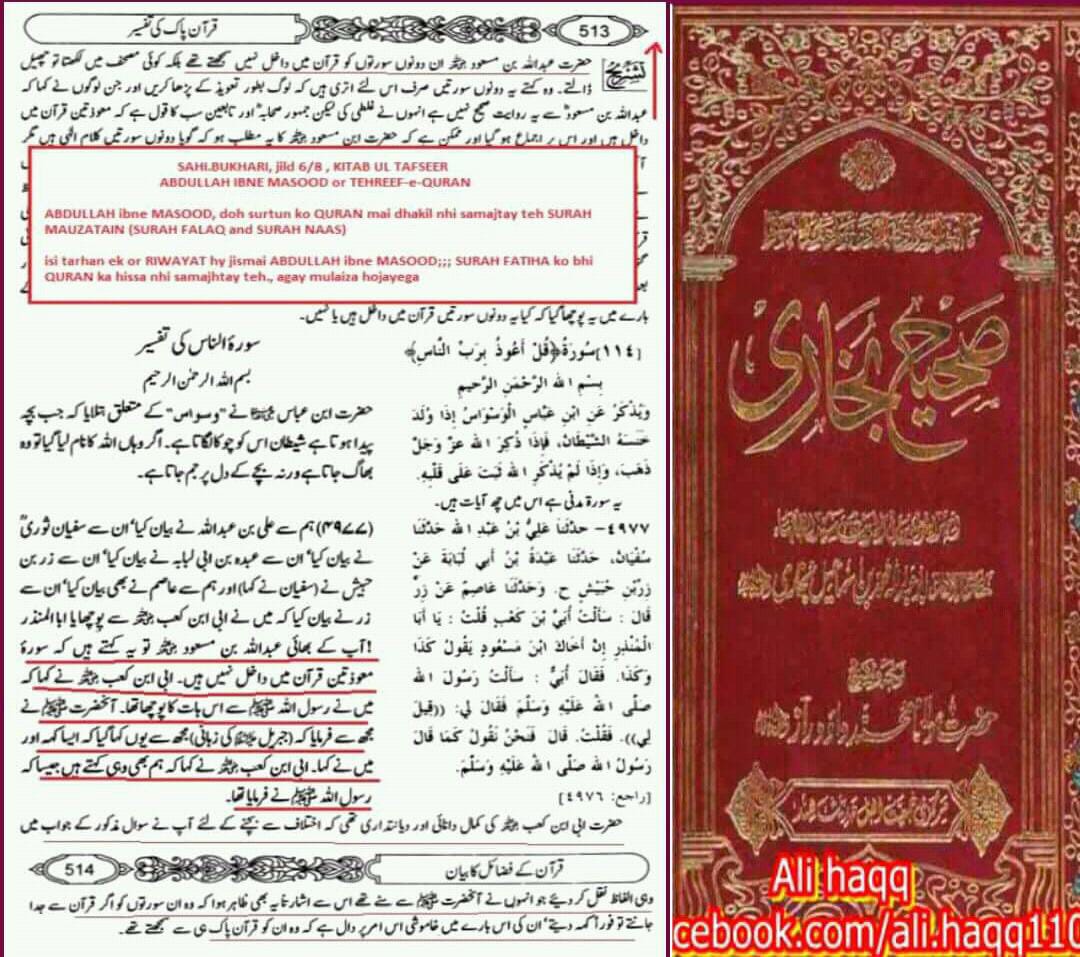 قرآن پاک کی تفسیر
513
تشریح حضرت عبداللہ بن مسعود ؓ ان دونوں سورتوں کو قرآن میں داخل نہیں سمجھتے تھے بلکہ کوئی مصحف میں لکھتا تو چھیل
ڈالتے۔ وہ کہتے یہ دونوں سورتیں صرف اس لئے اتری ہیں کہ لوگ بطور تعویذ کے پڑھا کریں اور جن لوگوں نے کہا کہ
عبداللہ بن مسعودؓ سے یہ روایت صحیح نہیں ہے انہوں نے غلطی کی لیکن جمہور صحابہؓ اور تابعین سب کا قول ہے کہ معوذتین قرآن میں
داخل ہیں اور اس پر اجماع ہو گیا اور ممکن ہے کہ حضرت ابن مسعود ؓ کا یہ مطلب ہو کہ گویا دونوں سورتیں کلام الٰہی ہیں مگر
SAHI.BUKHARI, jild 6/8 , KITAB UL TAFSEER
ABDULLAH IBNE MASOOD or TEHREEF-e-QURAN
ABDULLAH ibne MASOOD, doh surtun ko QURAN mai dhakil nhi samajtay teh SURAH
MAUZATAIN (SURAH FALAQ and SURAH NAAS)
isi tarhan ek or RIWAYAT hy jismai ABDULLAH ibne MASOOD;;; SURAH FATIHA ko bhi
QURAN ka hissa nhi samajhtay teh., agay mulaiza hojayega
بارے میں یہ پوچھا گیا کہ کیا یہ دونوں سورتیں قرآن میں داخل ہیں یا نہیں۔
[١١٤] سُورَةُ ﴿قُلْ أَعُوذُ بِرَبِّ النَّاسِ﴾
بِسْمِ اللهِ الرَّحْمَنِ الرَّحِيمِ
وَيُذْكَرُ عَنِ ابْنِ عَبَّاسٍ الْوَسْوَاسُ إِذَا وُلِدَ
خَنَسَهُ الشَّيْطَانُ، فَإِذَا ذُكِرَ اللهُ عَزَّ وَجَلَّ
ذَهَبَ، وَإِذَا لَمْ يُذْكَرِ اللهُ ثَبَتَ عَلَى قَلْبِهِ.
سورۂ الناس کی تفسیر
بسم اللہ الرحمٰن الرحیم
حضرت ابن عباس ؓ نے "وسواس" کے متعلق بتلایا کہ جب بچہ
پیدا ہوتا ہے شیطان اس کو چوکا لگاتا ہے۔ اگر وہاں اللہ کا نام لیا گیا تو وہ
بھاگ جاتا ہے ورنہ بچے کے دل پر جم جاتا ہے۔
یہ سورۃ مدنی ہے اس میں چھ آیات ہیں۔
٤٩٧٧- حَدَّثَنَا عَلِيُّ بْنُ عَبْدِ اللهِ حَدَّثَنَا
سُفْيَانُ، حَدَّثَنَا عَبْدَةُ بْنُ أَبِي لُبَابَةَ عَنْ
زِرِّ بْنِ حُبَيْشٍ ح. وَحَدَّثَنَا عَاصِمٌ عَنْ زِرٍّ
قَالَ : سَأَلْتُ أُبَيَّ بْنَ كَعْبٍ قُلْتُ : يَا أَبَا
الْمُنْذِرِ إِنَّ أَخَاكَ ابْنَ مَسْعُودٍ يَقُولُ كَذَا
وَكَذَا. فَقَالَ أُبَيٌّ : سَأَلْتُ رَسُولَ اللهِ
صَلَّى اللهُ عَلَيْهِ وَسَلَّمَ فَقَالَ لِي: ((قِيلَ
لِي)). فَقُلْتُ. قَالَ فَنَحْنُ نَقُولُ كَمَا قَالَ
رَسُولُ اللهِ صَلَّى اللهُ عَلَيْهِ وَسَلَّمَ.
[راجع: ٤٩٧٦]
(۴۹۷۷) ہم سے علی بن عبداللہ نے بیان کیا' ان سے سفیان ثوریؒ
نے بیان کیا' ان سے عبدہ بن ابی لبابہ نے بیان کیا' ان سے زر بن
حبیش نے (سفیان نے کہا) اور ہم سے عاصم نے بھی بیان کیا' ان سے
زر نے بیان کیا کہ میں نے ابی ابن کعب ؓ سے پوچھا یا ابا المنذر
!آپ کے بھائی عبداللہ بن مسعود ؓ تو یہ کہتے ہیں کہ سورۃ
معوذتین قرآن میں داخل نہیں ہیں۔ ابی ابن کعب ؓ نے کہا کہ
میں نے رسول اللہ ﷺ سے اس بات کا پوچھا تھا۔ آنحضرت ﷺ نے
مجھ سے فرمایا کہ (جبریل ؑ کی زبانی) مجھ سے یوں کہا گیا کہ ایسا کہہ اور
میں نے کہا۔ ابی ابن کعب ؓ نے کہا کہ ہم بھی وہی کہتے ہیں جیسا کہ
رسول اللہ ﷺ نے فرمایا تھا۔
حضرت ابی ابن کعب ؓ کی کمال دانائی اور دیانتداری تھی کہ اختلاف سے بچنے کے لئے آپ نے سوال مذکور کے جواب میں
514
قرآن کے فضائل کا بیان
وہی الفاظ نقل کر دیئے جو انہوں نے آنحضرت ﷺ سے سنے تھے اس سے اشارتاً یہ بھی ظاہر ہوا کہ وہ ان سورتوں کو اگر قرآن سے جدا
جانتے تو فوراً کہہ دیتے' ان کی اس بارے میں خاموشی اس امر پر دال ہے کہ وہ ان کو قرآن پاک ہی سے سمجھتے تھے۔
صحیح بخاری
Ali haqq
cebook.com/ali.haqq110